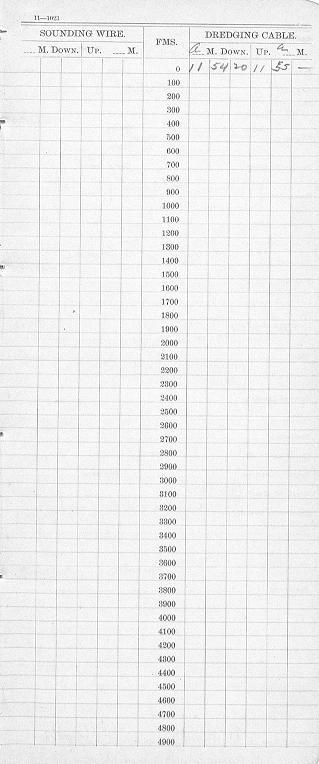 11—1021
SOUNDING WIRE. FMS. DREDGING CABLE.
M. DOWN. UP. M. a M. DOWN. UP. a M.
0 11 54 20 11 55 —
100
200
300
400
500
600
700
800
900
1000
1100
1200
1300
1400
1500
1600
1700
1800
1900
2000
2100
2200
2300
2400
2500
2600
2700
2800
2900
3000
3100
3200
3300
3400
3500
3600
3700
3800
3900
4000
4100
4200
4300
4400
4500
4600
4700
4800
4900